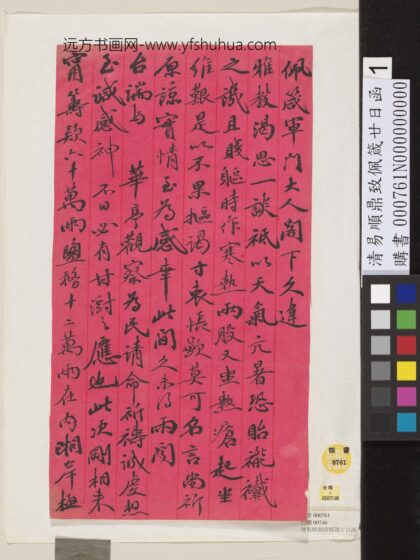 远方书画网-www.yfshuhua.com
佩箴軍門大人閣下久違
雅教渴思一談祇以天氣亢暑恐貽褦襶
之譏且賤軀時作寒熱兩股又生熱瘡起坐
維艱是以不果摳謁寸衷悵歉莫可名言尚祈
原諒實情至為感幸此間久未得雨聞
台端与 華亭觀察為民請命祈禱誠虔想
至誠感神不日必有甘澍之應也此次剛相来
甯籌款六十萬兩鹽務十二萬兩在内湘岸極
清易順鼎致佩箴廿日函
購書 000761N000000000
1
0761
000746